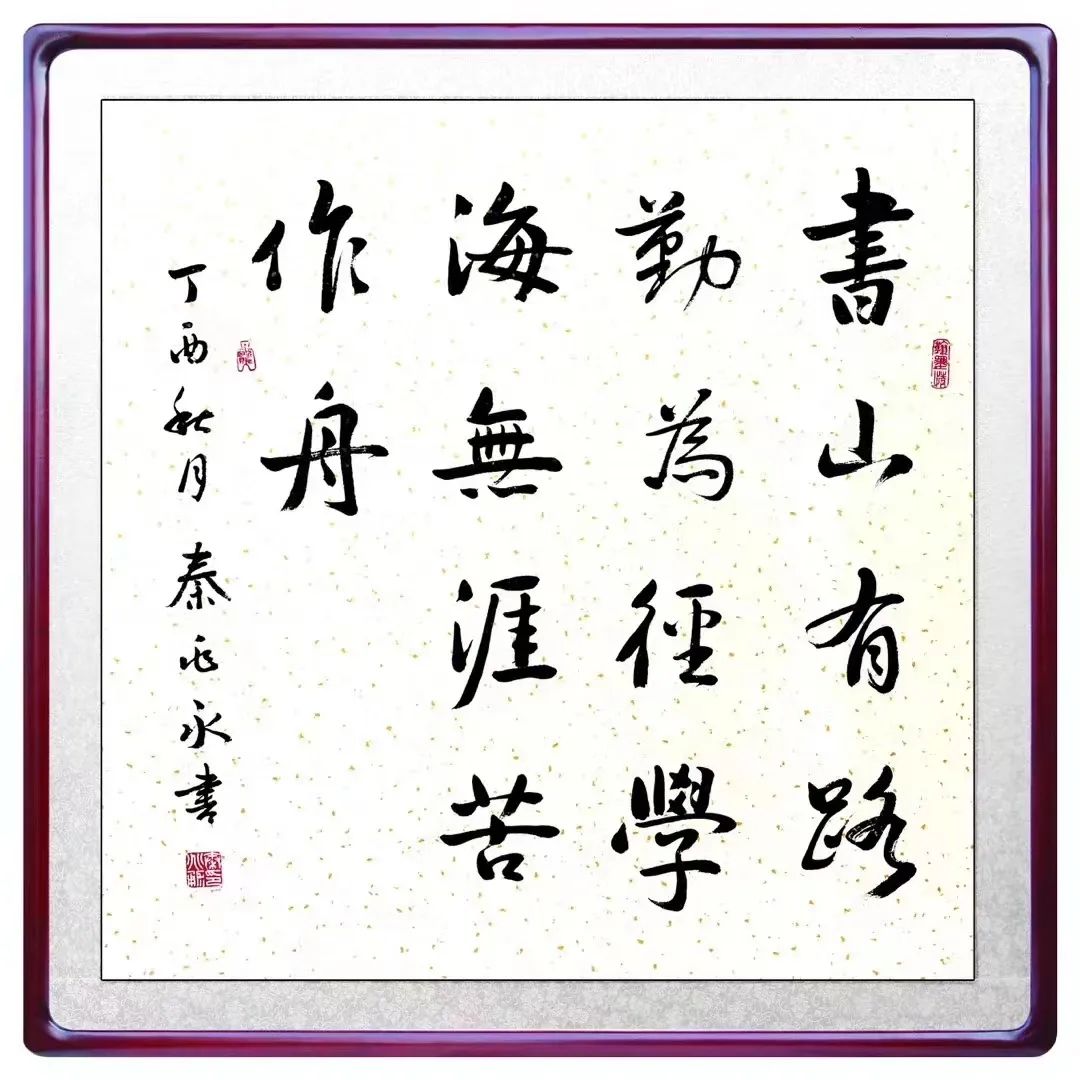 書山有路
勤為徑學
海無涯苦
作舟
丁酉秋月秦兆永書